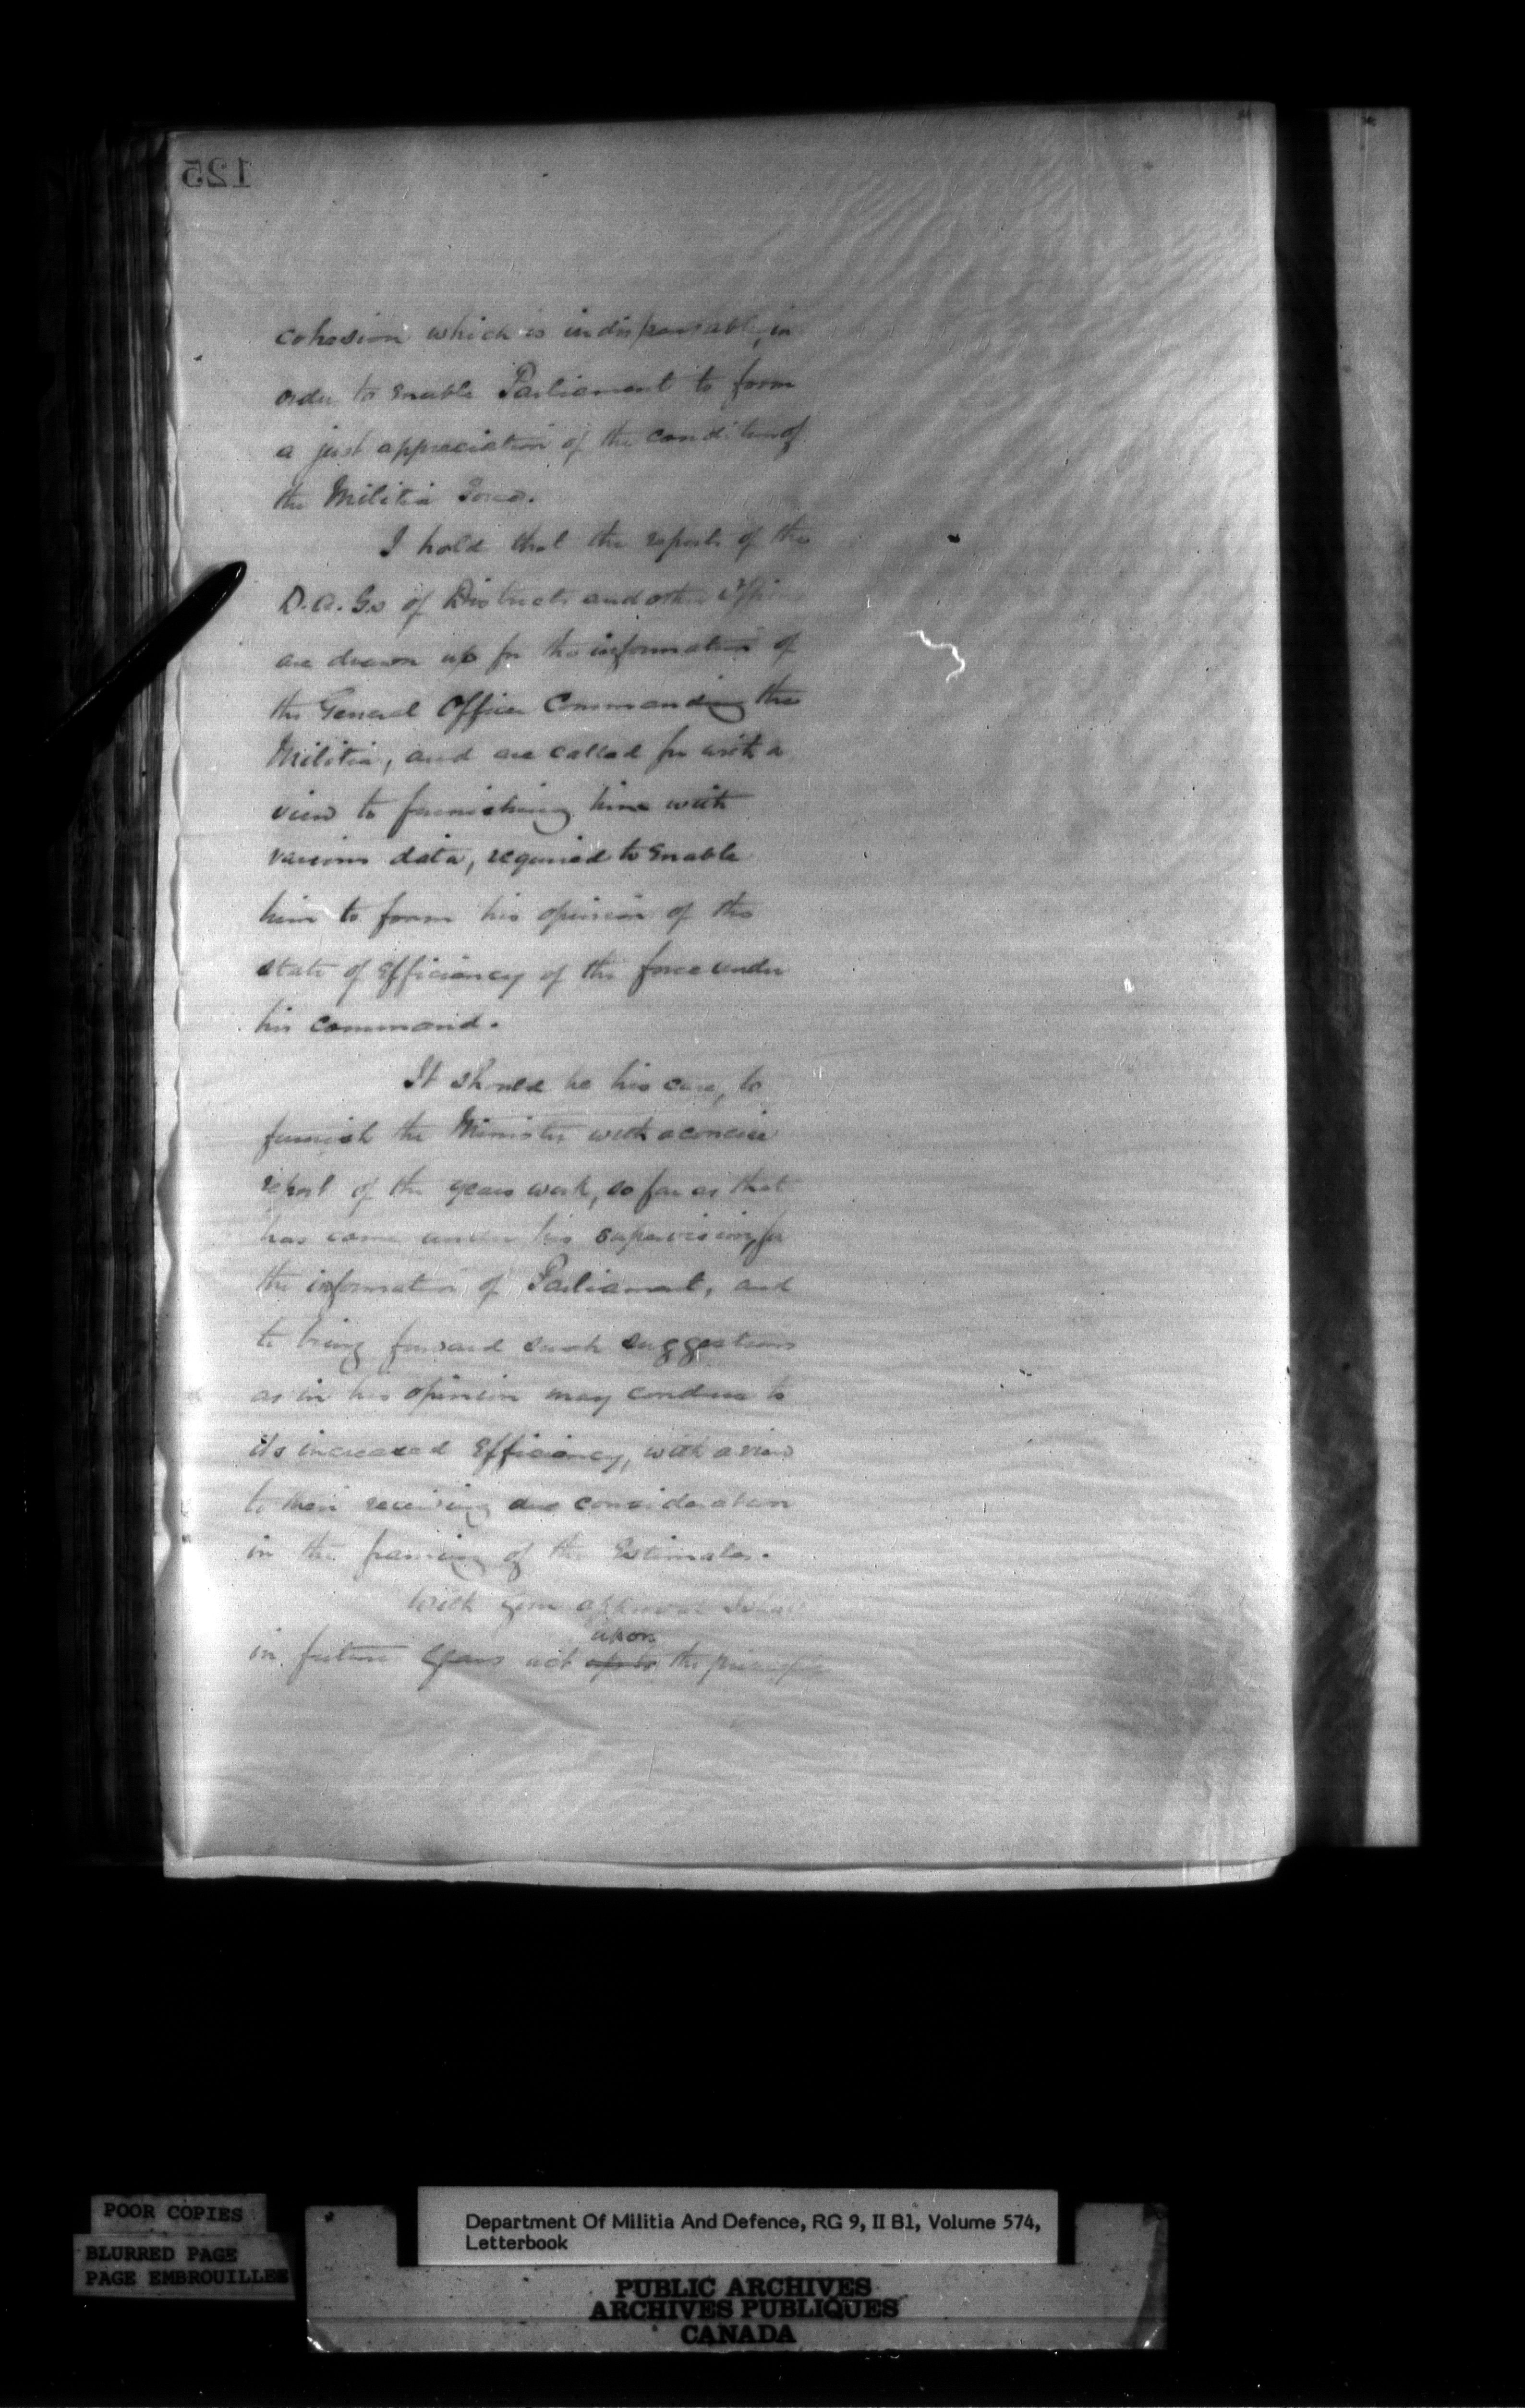 125
cohesion which is indispensable, in
order to enable Parliament to form
a just appreciation of the condition of
the Militia Force.
I hold that the reports of the
D.A.Gs of Districts and other Officers
are drawn up for the information of
the General Officer Commanding the
Militia, and are called for with a
view to furnishing him with
various data, required to enable
him to form his opinion of the
state of efficiency of the force under
his command.
It should be his care, to
furnish the Minister with a concise
report of the years work, so far as that
has come under his supervision, for
the information of Parliament, and
to bring forward such suggestions
as in his opinion may conduce to
its increased efficiency, with a view
to their receiving due consideration
in the framing of the Estimates.
With your approval I shall
upon
in future years act up to the principle
POOR COPIES
BLURRED PAGE
PAGE EMBROUILLEE
Department Of Militia And Defence, RG 9, II B1, Volume 574,
Letterbook
PUBLIC ARCHIVES
ARCHIVES PUBLIQUES
CANADA